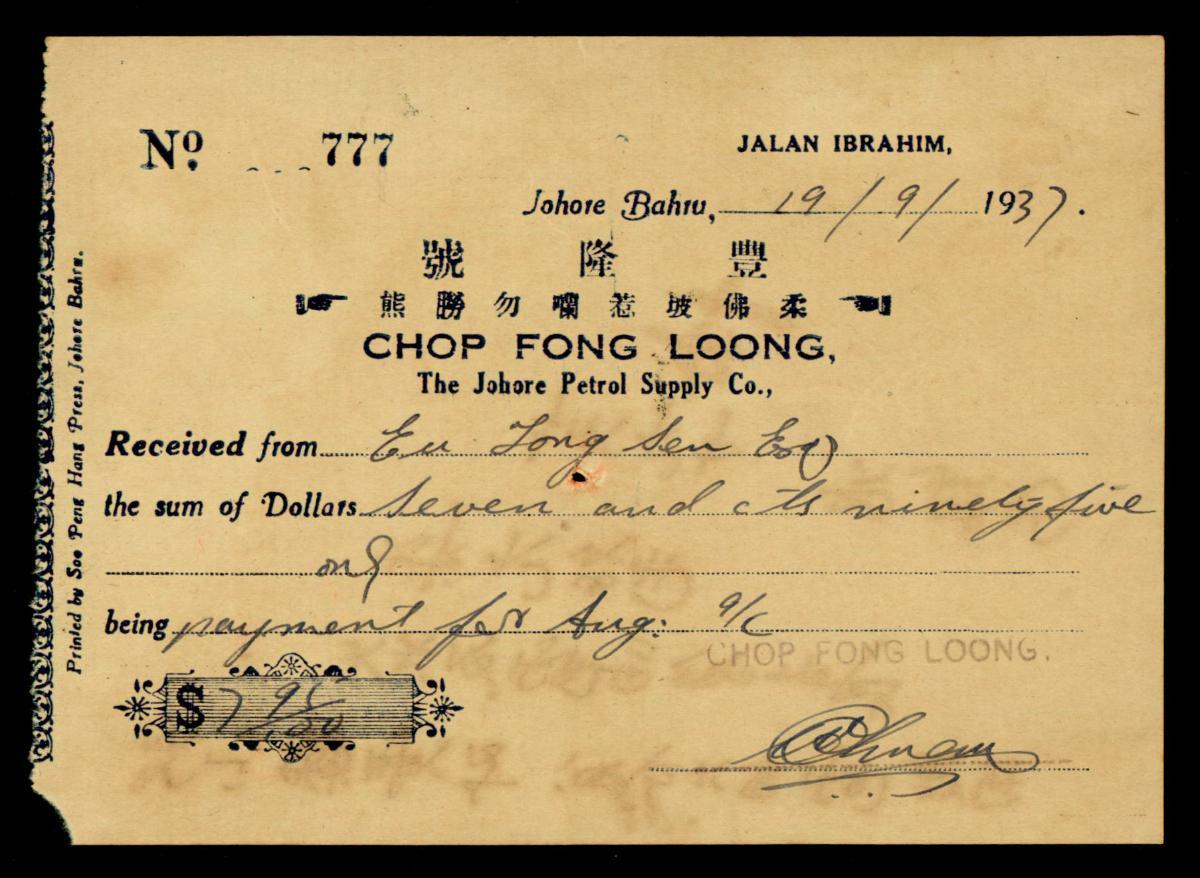 No. 777
JALAN IBRAHIM,
Johore Bahru, 19/9/1937.
號 隆 豐
熊 勝 勿 囒 惹 坡 佛 柔
CHOP FONG LOONG,
The Johore Petrol Supply Co.,
Received from Eu Tong Sen Esq
the sum of Dollars Seven and cts ninety-five
only
being payment for Aug: a/c
CHOP FONG LOONG.
$ 7 95/100
Printed by Soo Peng Hang Press, Johore Bahru.